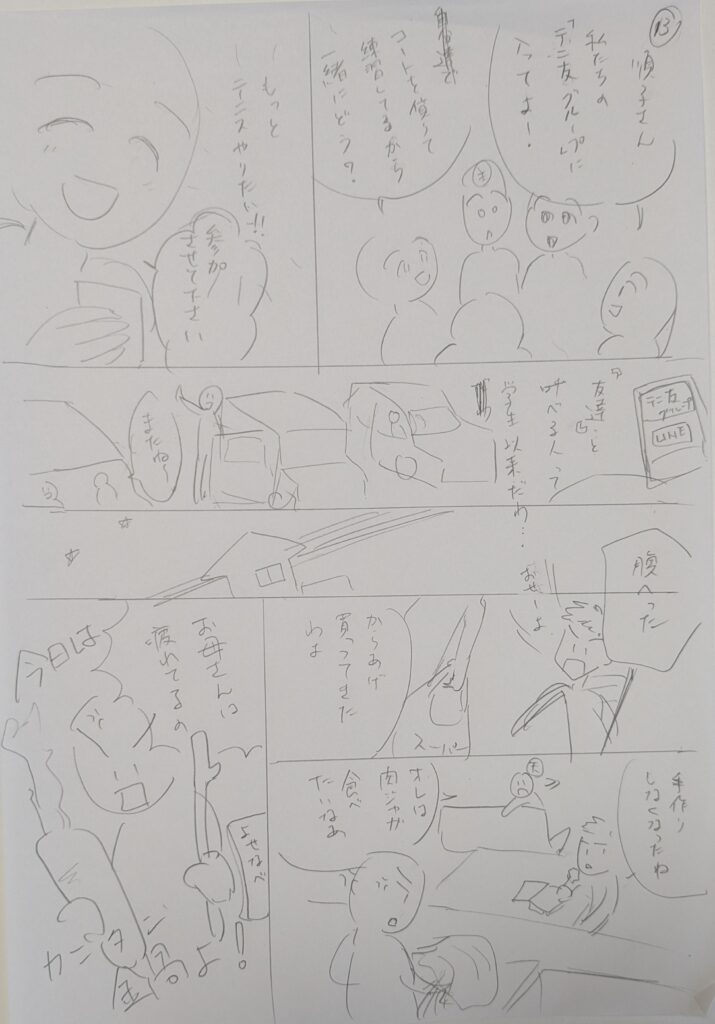 13
順子さん
私たちの
「テニ友グループ」に
入ってよ!
コートを借りて
練習してるから
一緒にどう?
もっと
テニスやりたい!!
参加
させて下さい
テニ友
グループ
LINE
"友達"と
呼べる人って
学生以来だわ…
またね〜
腹へった
おせーよ
からあげ
買ってきた
わよ
スーパー
手作り
しなくなったね
オレは
肉ジャガ
食べ
たいなあ
お母さんは
疲れてるの
今日は
よせなべ
カンタン
最高よ!